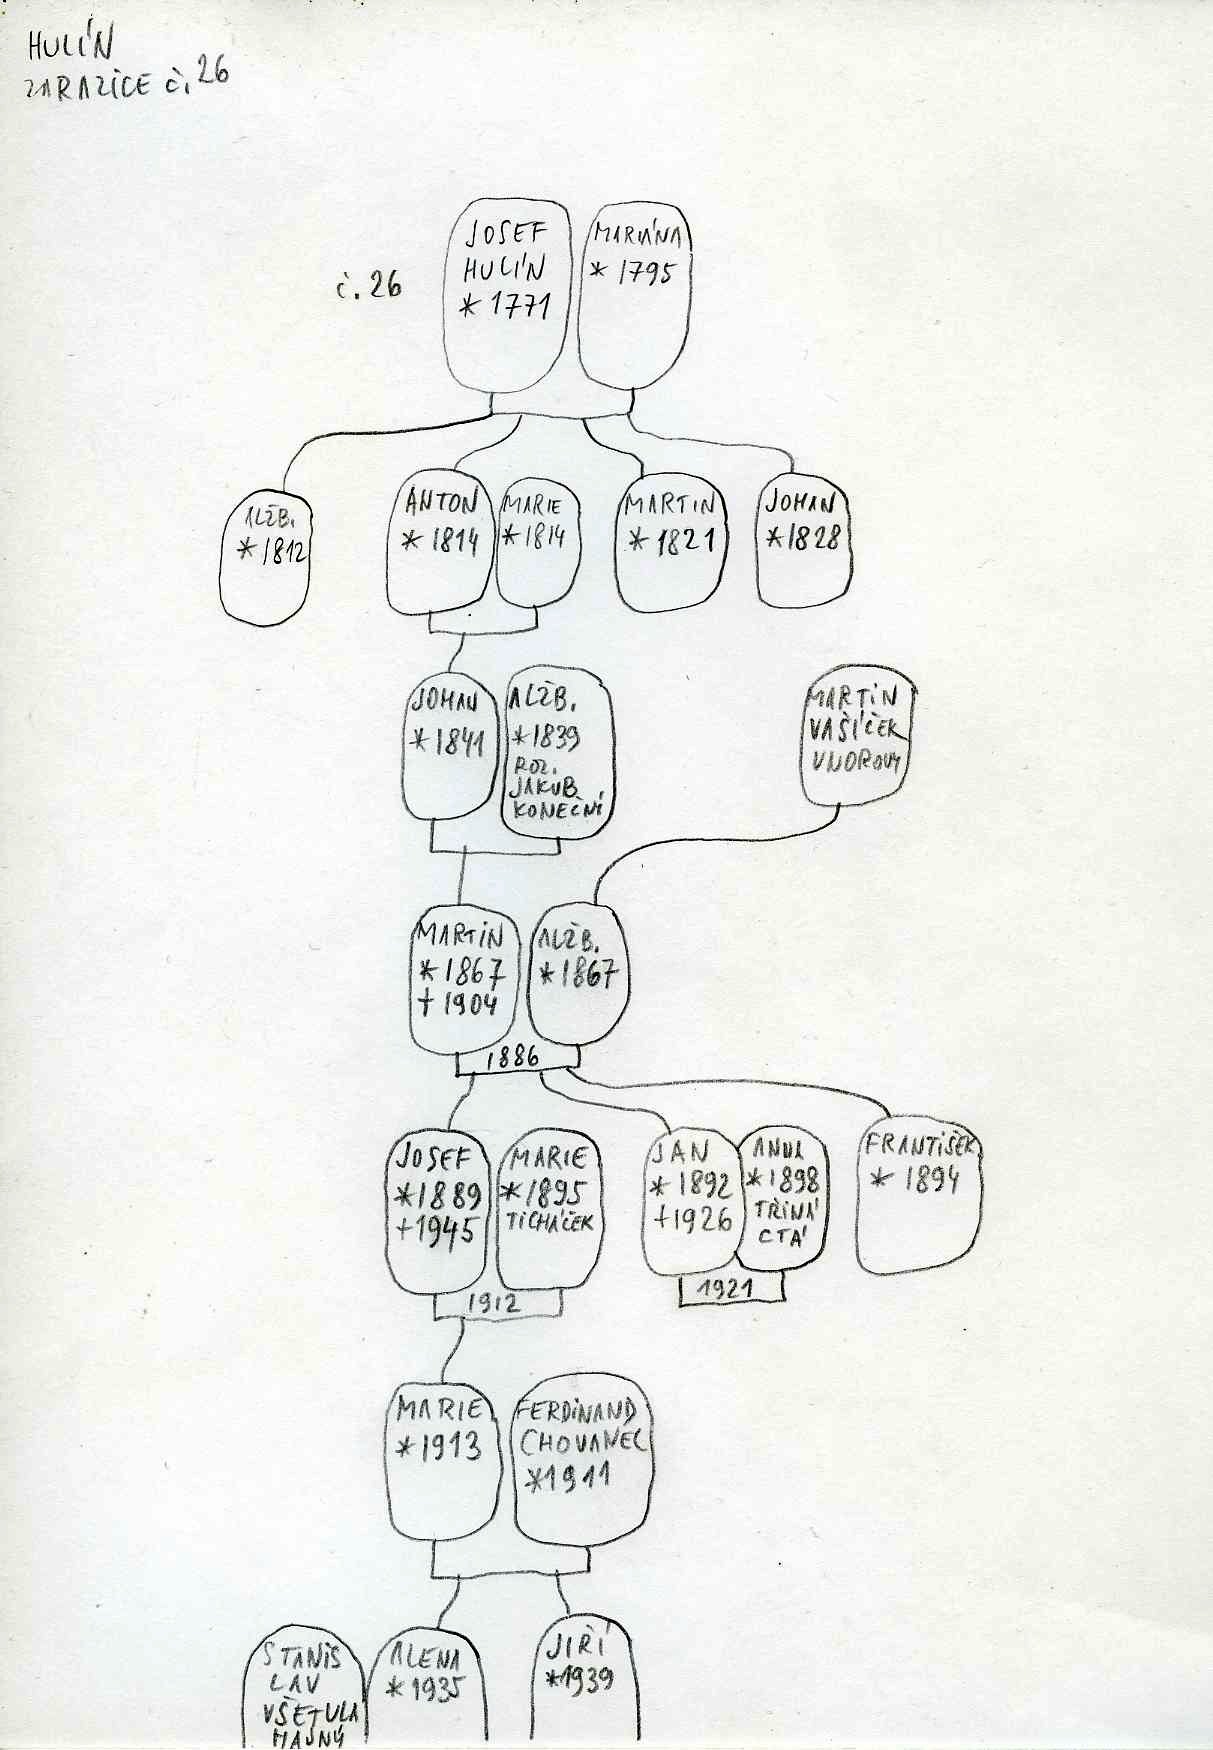 HULÍN
ZARAZICE č. 26
č. 26
JOSEF
HULÍN
* 1771
MARIÁNA
* 1795
ALŽB.
* 1812
ANTON
* 1814
MARIE
* 1814
MARTIN
* 1821
JOHAN
* 1828
JOHAN
* 1841
ALŽB.
* 1839
ROZ.
JAKUB
KONEČNÍ
MARTIN
VAŠÍČEK
VNOROVY
MARTIN
* 1867
† 1904
ALŽB.
* 1867
1886
JOSEF
* 1889
† 1945
MARIE
* 1895
TICHÁČEK
JAN
* 1892
† 1926
ANNA
* 1898
TŘINÁ
CTÁ
FRANTIŠEK
* 1894
1912
1921
MARIE
* 1913
FERDINAND
CHOVANEC
* 1911
STANIS
LAV
VŠETULA
HAJNÝ
ALENA
* 1935
JIŘÍ
* 1939